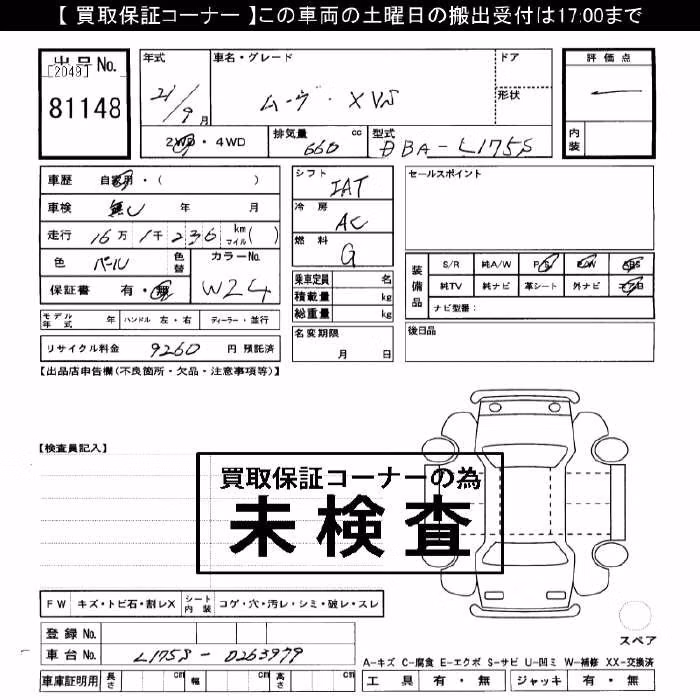 【 買取保証コーナー 】この車両の土曜日の搬出受付は17:00まで
出品No. [2049] 81148
年式 21/9月
車名・グレード ムーヴ・XVS
ドア
形状
評価点
内装
2WD・4WD
排気量 cc 660
型式 DBA-L175S
車歴 自家用・( )
車検 無し 年 月
走行 16万1千236 km マイル( )
色 パール 色替
カラーNo. W24
保証書 有・無
モデル年式 年 ハンドル 左・右 ディーラー・並行
リサイクル料金 9260 円 預託済
シフト IAT
冷房 AC
燃料 G
乗車定員 名
積載量 kg
総重量 kg
名変期限 月 日
セールスポイント
装備品 S/R 純A/W P/S P/W ABS
純TV 純ナビ 革シート 外ナビ エアB
ナビ型番:
後日品
【出品店申告欄(不良箇所・欠品・注意事項等)】
【検査員記入】
買取保証コーナーの為
未検査
FW キズ・トビ石・割レX シート内装 コゲ・穴・汚レ・シミ・破レ・スレ
登録No.
車台No. L175S-0263979
車庫証明用 長さ cm 幅 cm 高さ cm
スペア
A-キズ C-腐食 E-エクボ S-サビ U-凹ミ W-補修 XX-交換済
工具 有・無 ジャッキ 有・無